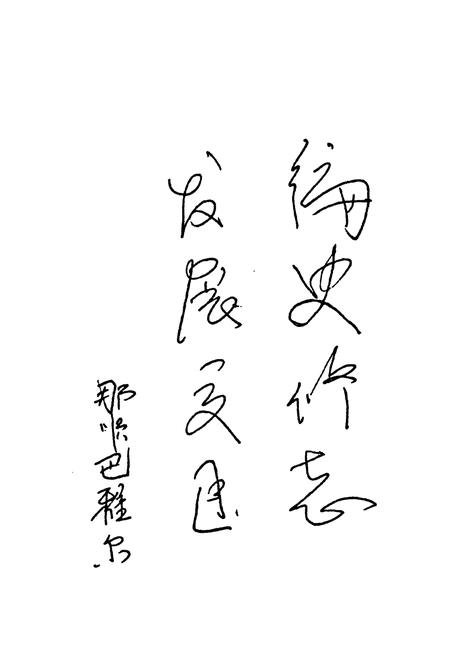 编史修志
发展交通
那顺巴雅尔